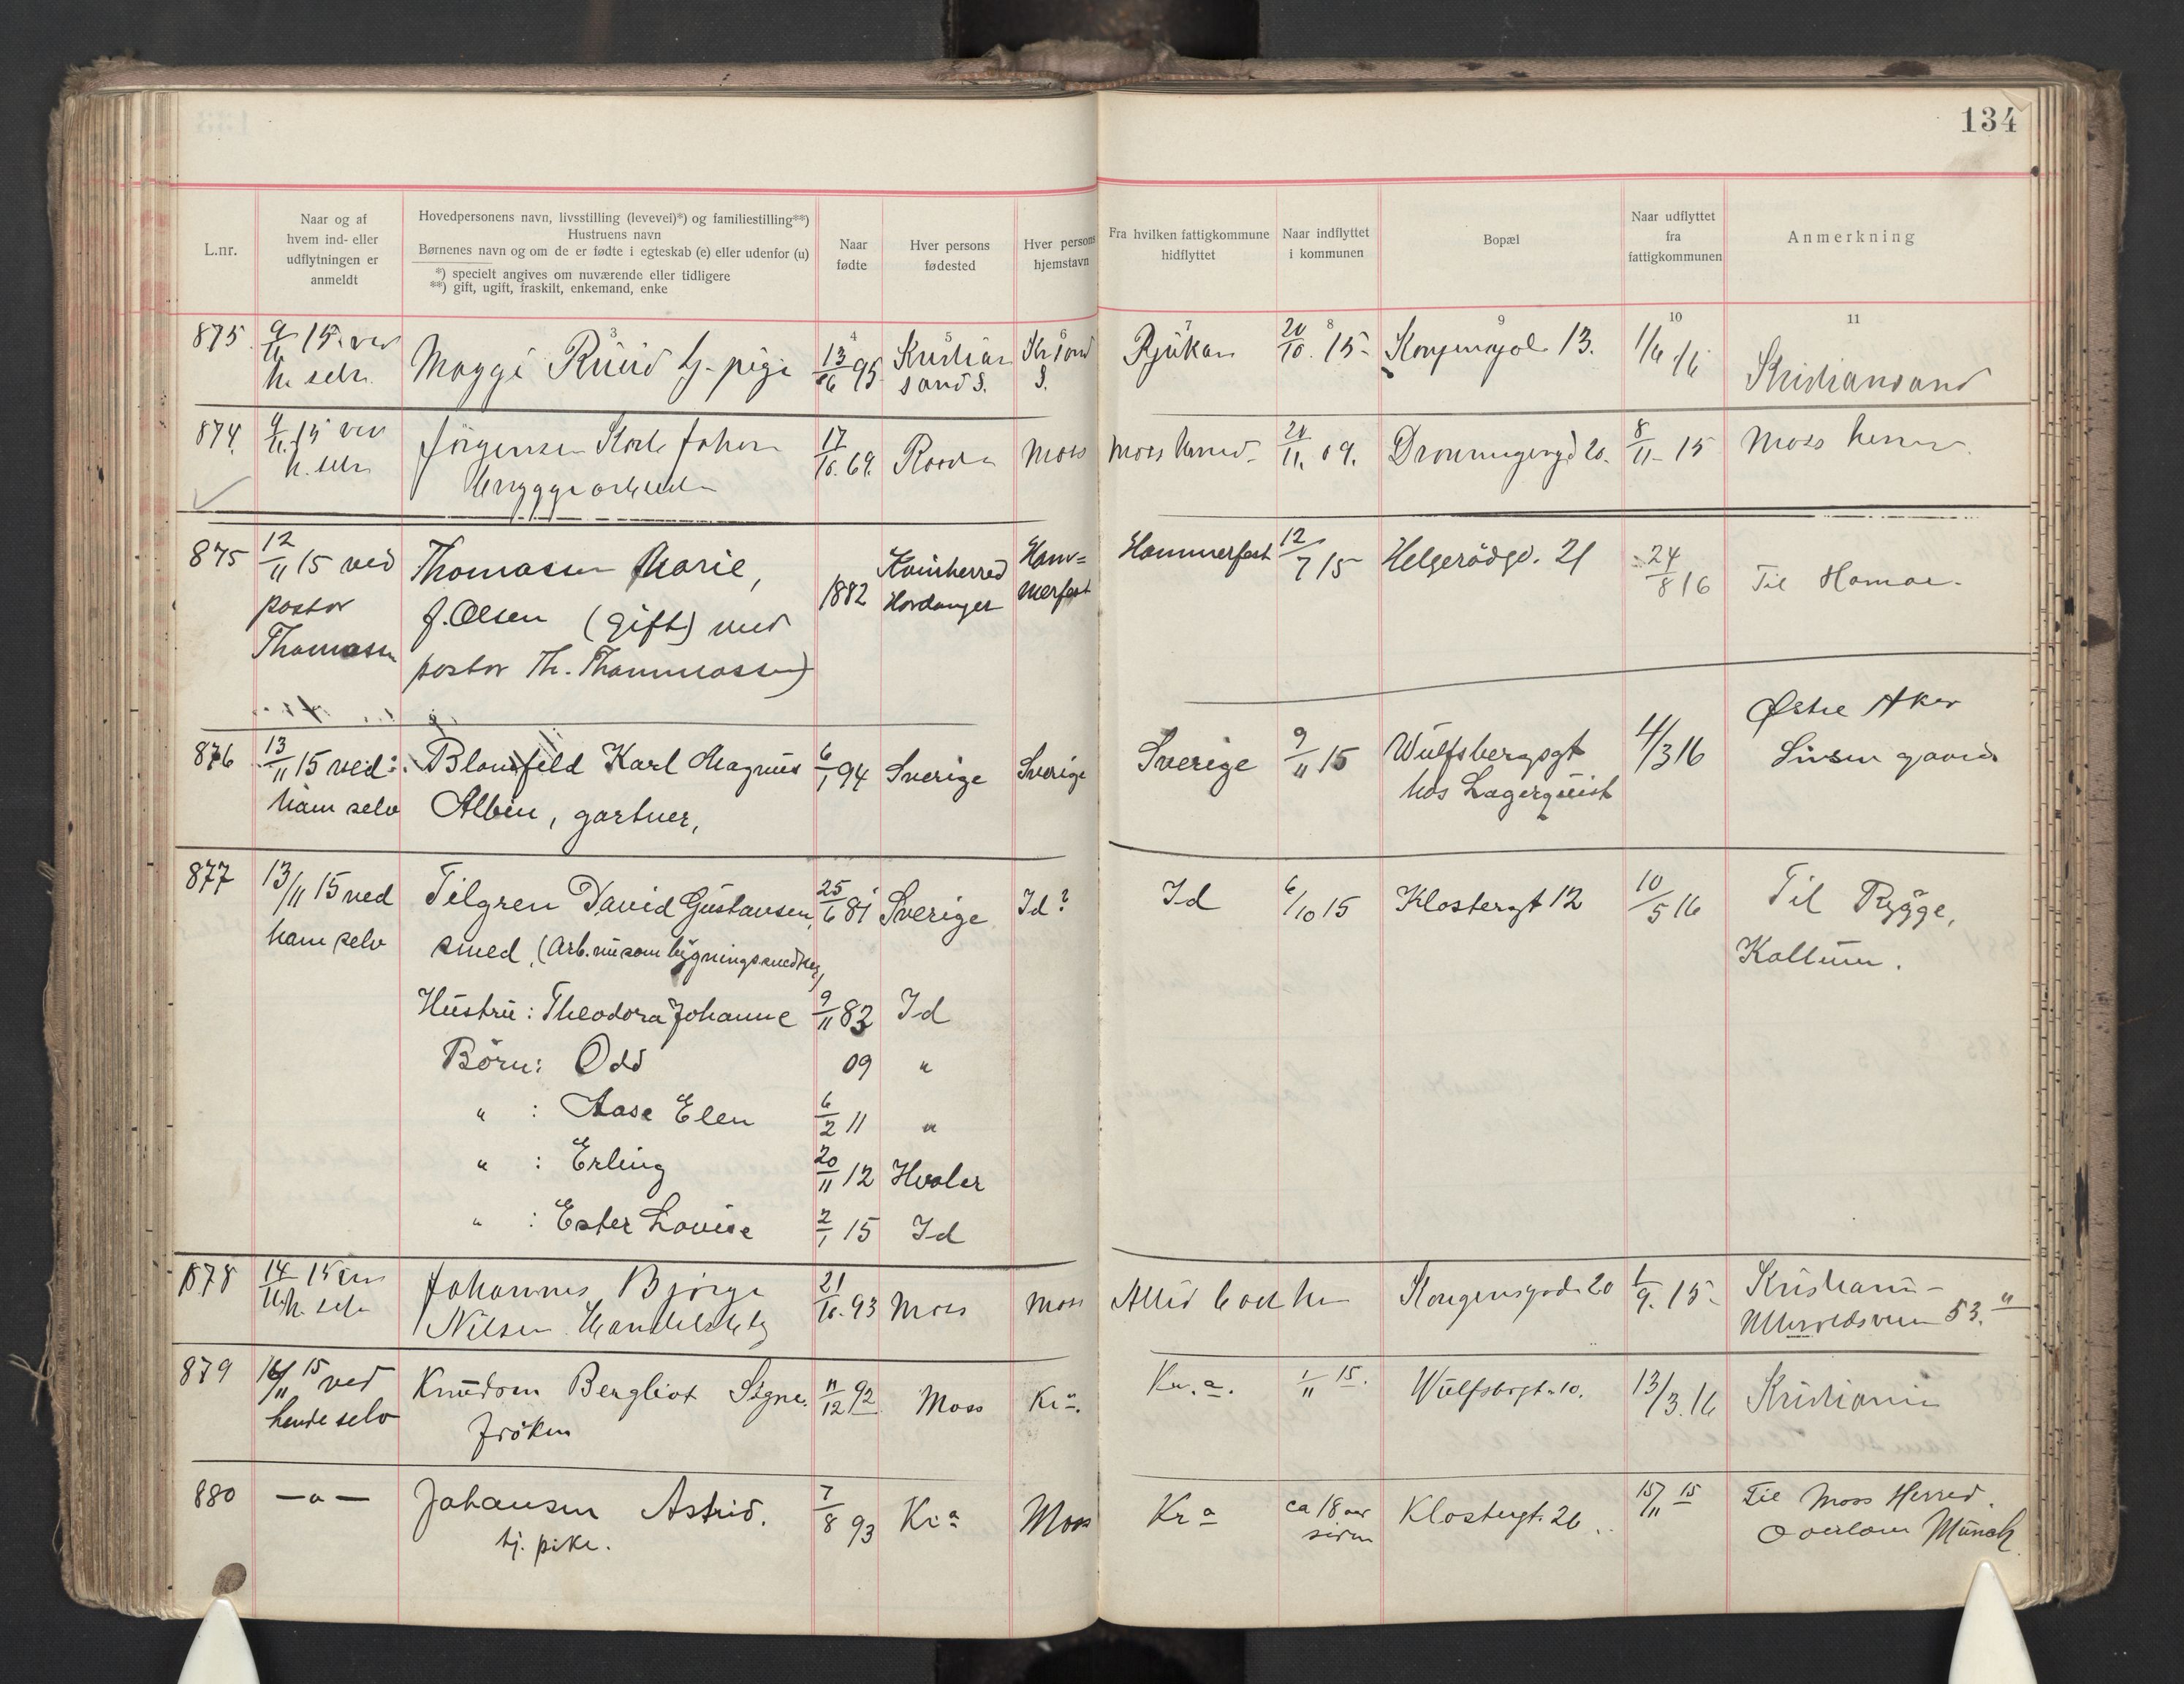 134
L.nr.
Naar og af
hvem ind- eller
udflytningen er
anmeldt
Hovedpersonens navn, livsstilling (levevei)*) og familiestilling**)
Hustruens navn
Børnenes navn og om de er fødte i egteskab (e) eller udenfor (u)
*) specielt angives om nuværende eller tidligere
**) gift, ugift, fraskilt, enkemand, enke
Naar
fødte
Hver persons
fødested
Hver persons
hjemstavn
Fra hvilken fattigkommune
hidflyttet
Naar indflyttet
i kommunen
Bopæl
Naar udflyttet
fra
fattigkommunen
Anmerkning
3 4 5 6 7 8 9 10 11
875 9/11 15. ved Maggi Ruud tj. pige 13/6 95 Kristian Kr.sand Rjukan 20/10 15 13. 1/6 16
h. selv sand S. S. Kristiansand
874. 9/11 15 ved Jörgensen Karl Johan 17/10. 69. Moss Moss herred 24/11. 09. Dronningensgd 20. 8/11 15 Moss herred
h. selv Bryggearbeider
875 12/11 15 ved Thomassen Marie, 1882 Kvinherred Ham= Hammerfest 12/7 15 Helgerödgd. 21 24/8 16 Til Hamar.
pastor f. Olsen (gift) med Hardanger merfest
Thomassen pastor Th. Thommassen)
876 13/11 15 ved: Blomfeld Karl Magnus 6/1 94 Sverige Sverige Sverige 9/11 15 Wulfsbergsgt 4/3 16 Østre Aker
ham selv Albin, gartner, hos Lagerquist
877 13/11 15 ved Tilgren David Gustavsen, 25/6 81 Sverige Id? Id 6/10 15 Klostergt 12 10/5 16 Til Rygge,
ham selv smed, (Arb. nu som bygningssmed Kallum.
Hustru: Theodora Johanne 9/11 83 Id
Börn: Odd 09 "
" : Aase Elen 6/2 11 "
" : Erling 20/11 12 Hvaler
" : Ester Lovise 2/1 15 Id
878 14/11 15 ved Johannes Börge 21/10. 93 Moss Moss Altid boet her Kongensgade 20 1/9. 15 Kristiania
h. selv Nilsen 53.
879 16/11 15 ved Knudsen Bergliot Signe. 11/12 92 Moss Kr.a. Kr.a. 1/11 15. Wulfsbgt. 10. 13/3. 16 Kristiania
hende selv Fröken
880 —"— Johansen Astrid. 7/8 93 Kr a Moss Kr a ca 18 aar Klostergt. 26 15/11 15 Til Moss Herred.
tj. pike. siden Munch